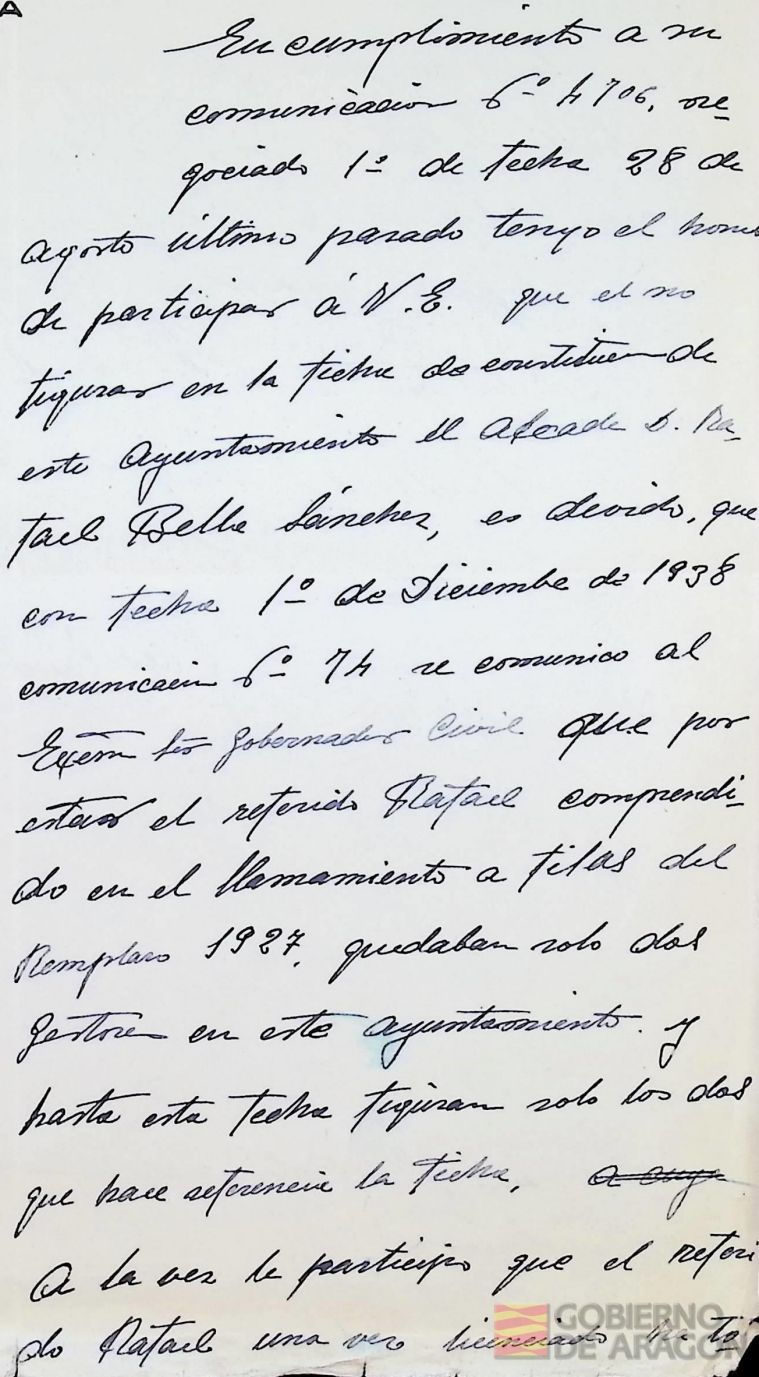 A
En cumplimiento a su
comunicación nº 4706, ne-
gociado 1º de fecha 28 de
agosto último pasado tengo el honor
de participar á V.E. que el no
figurar en la ficha de constitucion de
este Ayuntamiento el Alcade D. Ra-
fael Belle Sánchez, es devido, que
con fecha 1º de Diciembe de 1938
comunicacion nº 74 se comunico al
Excem Sr Gobernador Civil que por
estar el referido Rafael comprendi-
do en el llamamiento a filas del
Remplazo 1927, quedaban solo dos
Gestores en este ayuntamiento. y
hasta esta fecha figuran solo los dos
que hace referencia la ficha, a cuya
A la vez le participo que el referi
do Rafael una vez licenciado
GOBIERNO
DE ARAGON